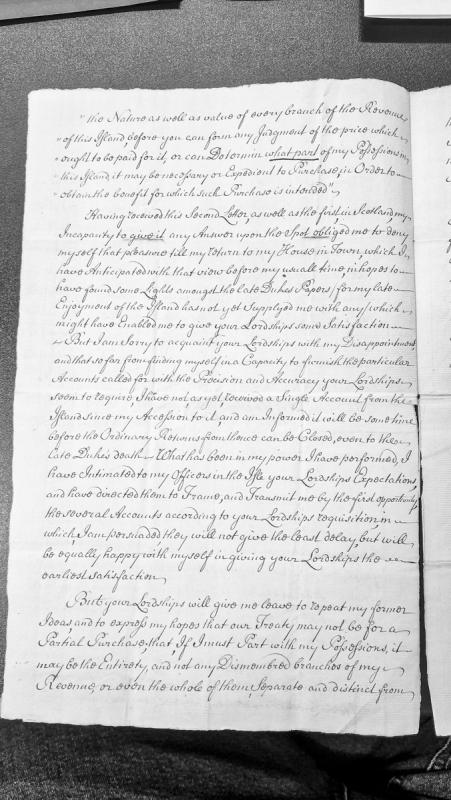 "the Nature as well as value of every branch of the Revenue
"of this Island before you can form any Judgment of the price which
"ought to be paid for it, or can Determin what part of my Possessions in
"this Island it may be necessary or Expedient to Purchase, in Order to
"obtain the benefit for which such Purchase is intended"
Having received this Second Letter, as well as the first, in Scotland my
Incapacity to give it any Answer upon the Spot obliged me to deny
myself that pleasure till my return to my House in Town, which I
have Anticipated with that view before my usuall time, in hopes to
have found some Lights amongst the late Dukes Papers, for my late
Enjoyment of the Island has not yet Supplyed me with any which
might have Enabled me to give your Lordships some Satisfaction
But I am Sorry to acquaint your Lordships with my Disappointment
and that so far from finding myself in a Capacity to furnish the particular
Accounts called for with the Precision and Accuracy your Lordships
seem to require I have not, as yet, received a Single Account from the
Island since my Accession to it, and am Informed it will be some time
before the Ordinary Returns from thence can be Closed, even to the
late Duke's death What has been in my power I have performed, I
have Intimated to my Officers in the Isle your Lordships Expectations,
and have directed them to Frame, and Transmit me by the first opportunity
the several Accounts according to your Lordships requisition, in
which, I am persuaded they will not give the least delay, but will
be equally happy with myself in giving your Lordships the
earliest Satisfaction
But your Lordships will give me leave to repeat my former
Ideas, and to express my hopes that our Treaty may not be for a
Partial Purchase, that If I must Part with my Possessions, it
may be the Entirety, and not any Dismembred branches of my
Revenue, or even the whole of them Separate and distinct from